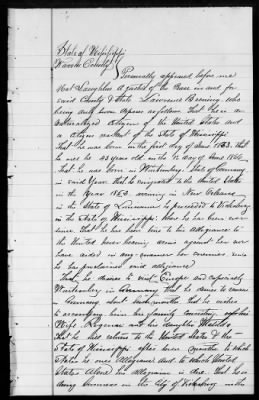 State of Mississippi
Warren County
Personally appeared before me
a Justice of the Peace in and for
said County & State Lawrence Benning who
being duly sworn deposes as follows that I am a
naturalized citizen of the United States and
a citizen resident of the State of Mississippi
that he was born in the first day of June 1823. that
he will be 43 years old on the day of June 1866
that he was born in Wurtemburg State of Germany
in said Year that he emigrated to the United States
in the Year 1854 arriving in New Orleans
in the State of Louisiana he proceeded to Vicksburg
in the State of Mississippi where he has been ever
since that he has been true to his allegiance to
the United never bearing arms against her nor
have aided in any manner her enemies nor
he has proclaimed any allegiance
That he desires to visit Europe and especially
Wurtemburg in Germany that he desires to remain
in Germany about months that he wishes
to accompany him his family consisting of his
Wife and his daughter Matilda
that he will return to the United States & the
State of Mississippi after months to which
State he owes Allegiance and to which United
States alone his allegiance is due. that he is
doing business in the City of Vicksburg in the